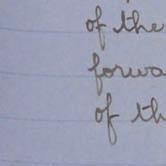 of the
forwa
of th